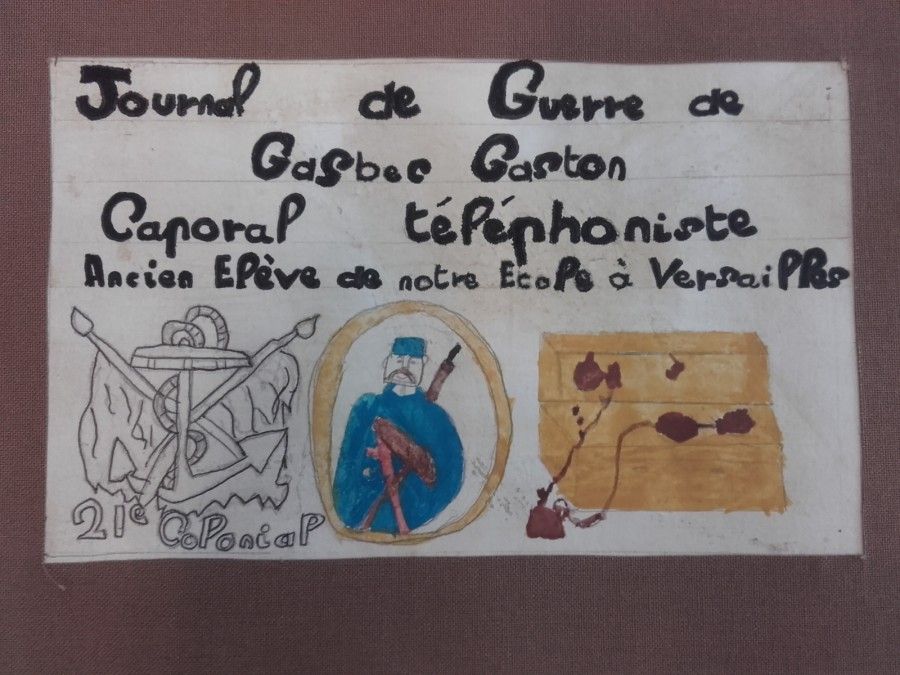 Journal de Guerre de
Gasbec Gaston
Caporal téléphoniste
Ancien Elève de notre Ecole à Versailles
21e Colonial